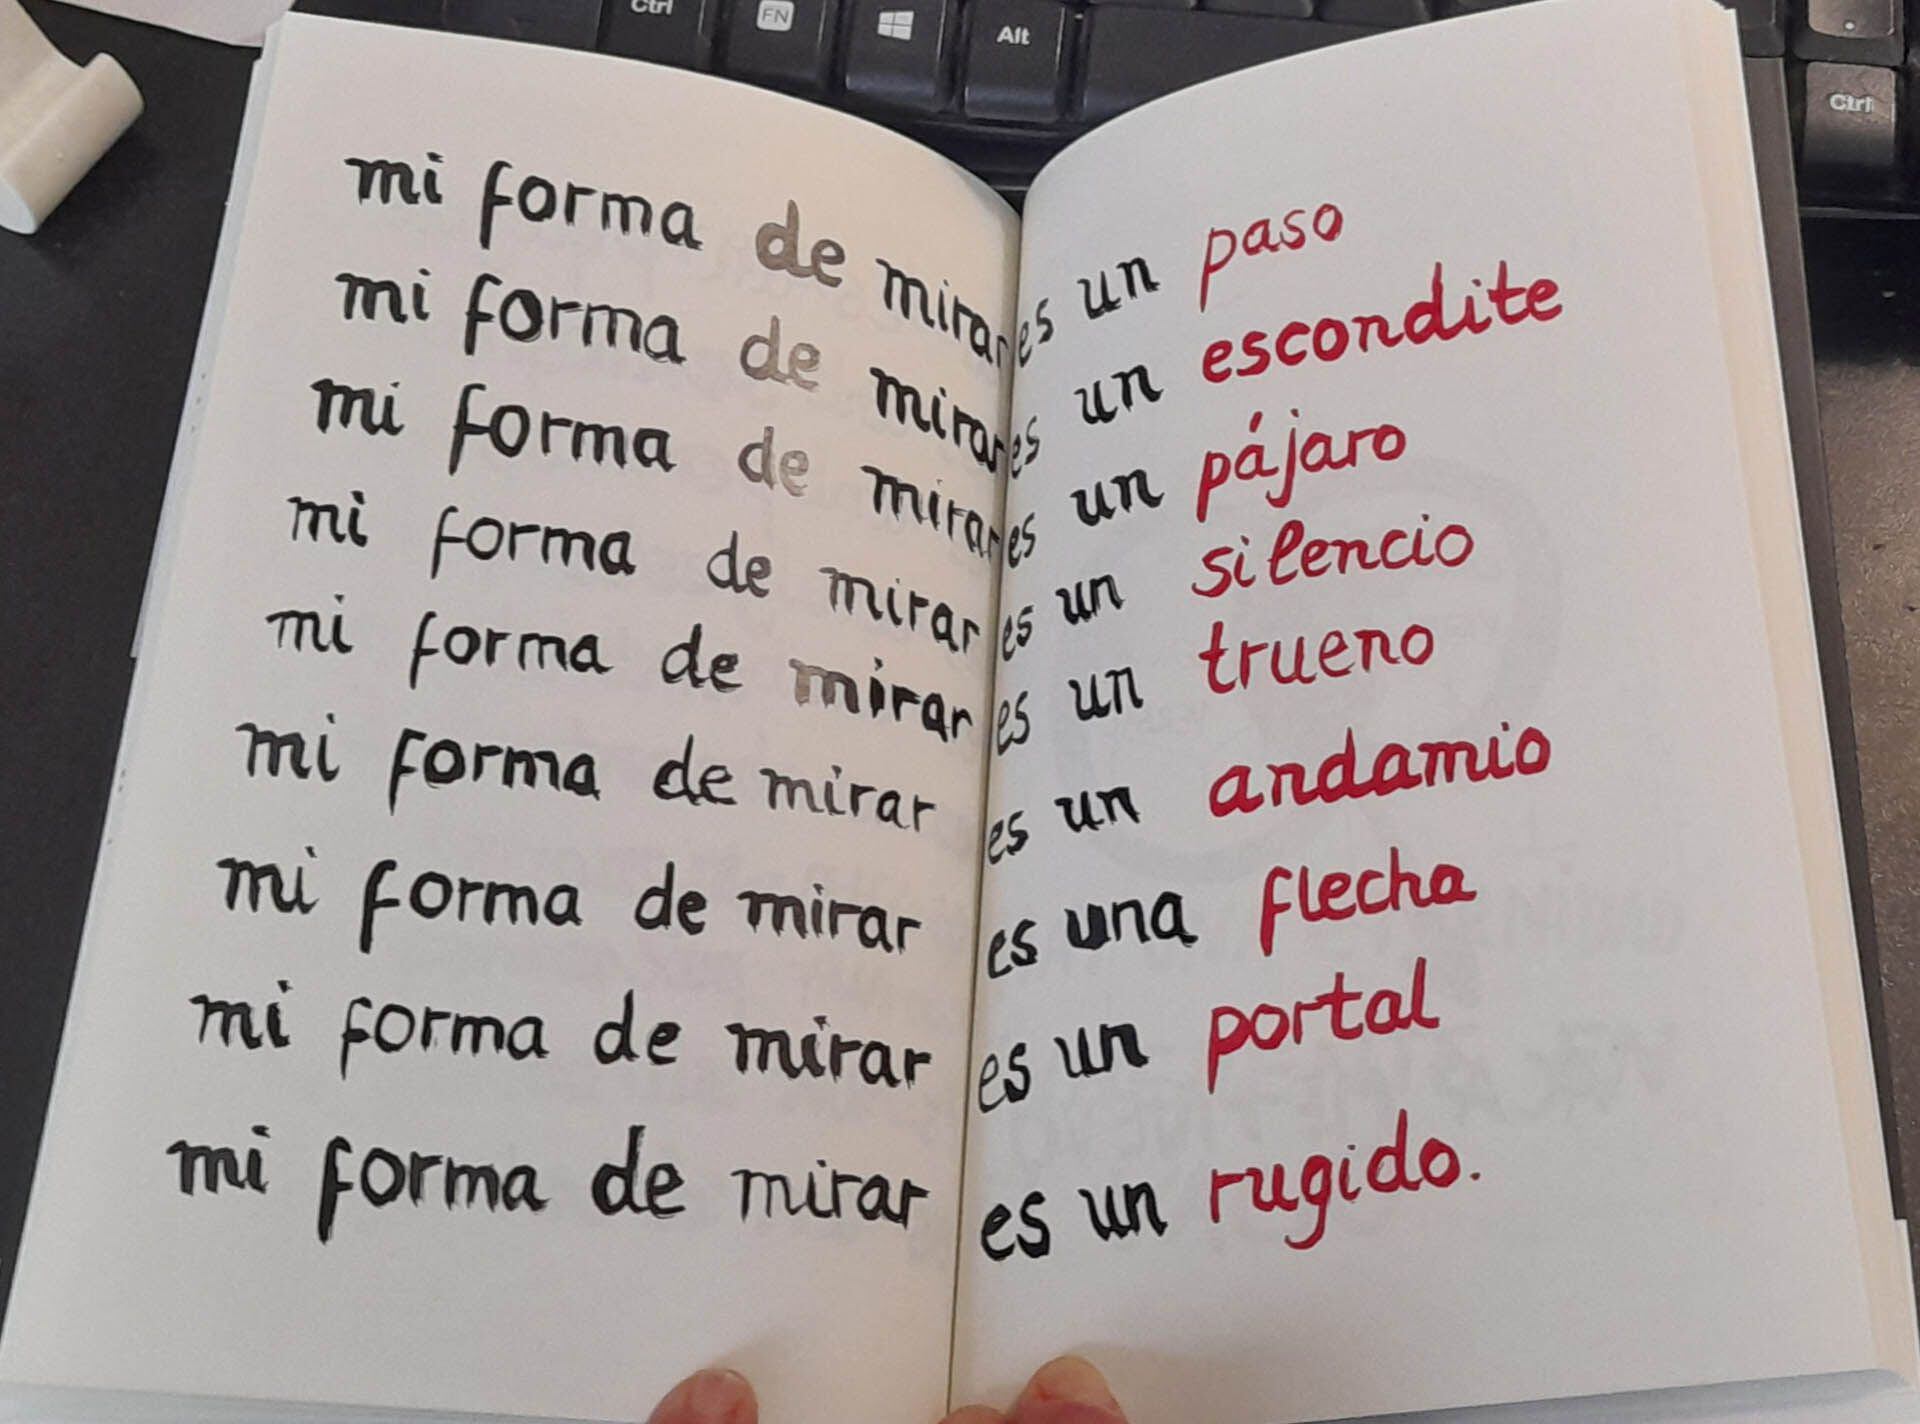 Ctrl FN Alt
Ctrl
mi forma de mirar es un paso
mi forma de mirar es un escondite
mi forma de mirar es un pájaro
mi forma de mirar es un silencio
mi forma de mirar es un trueno
mi forma de mirar es un andamio
mi forma de mirar es una flecha
mi forma de mirar es un portal
mi forma de mirar es un rugido.